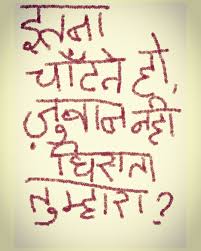 इतना
चाँटते हो,
ज़ुबान नहीं
घिसता
तुम्हारा?